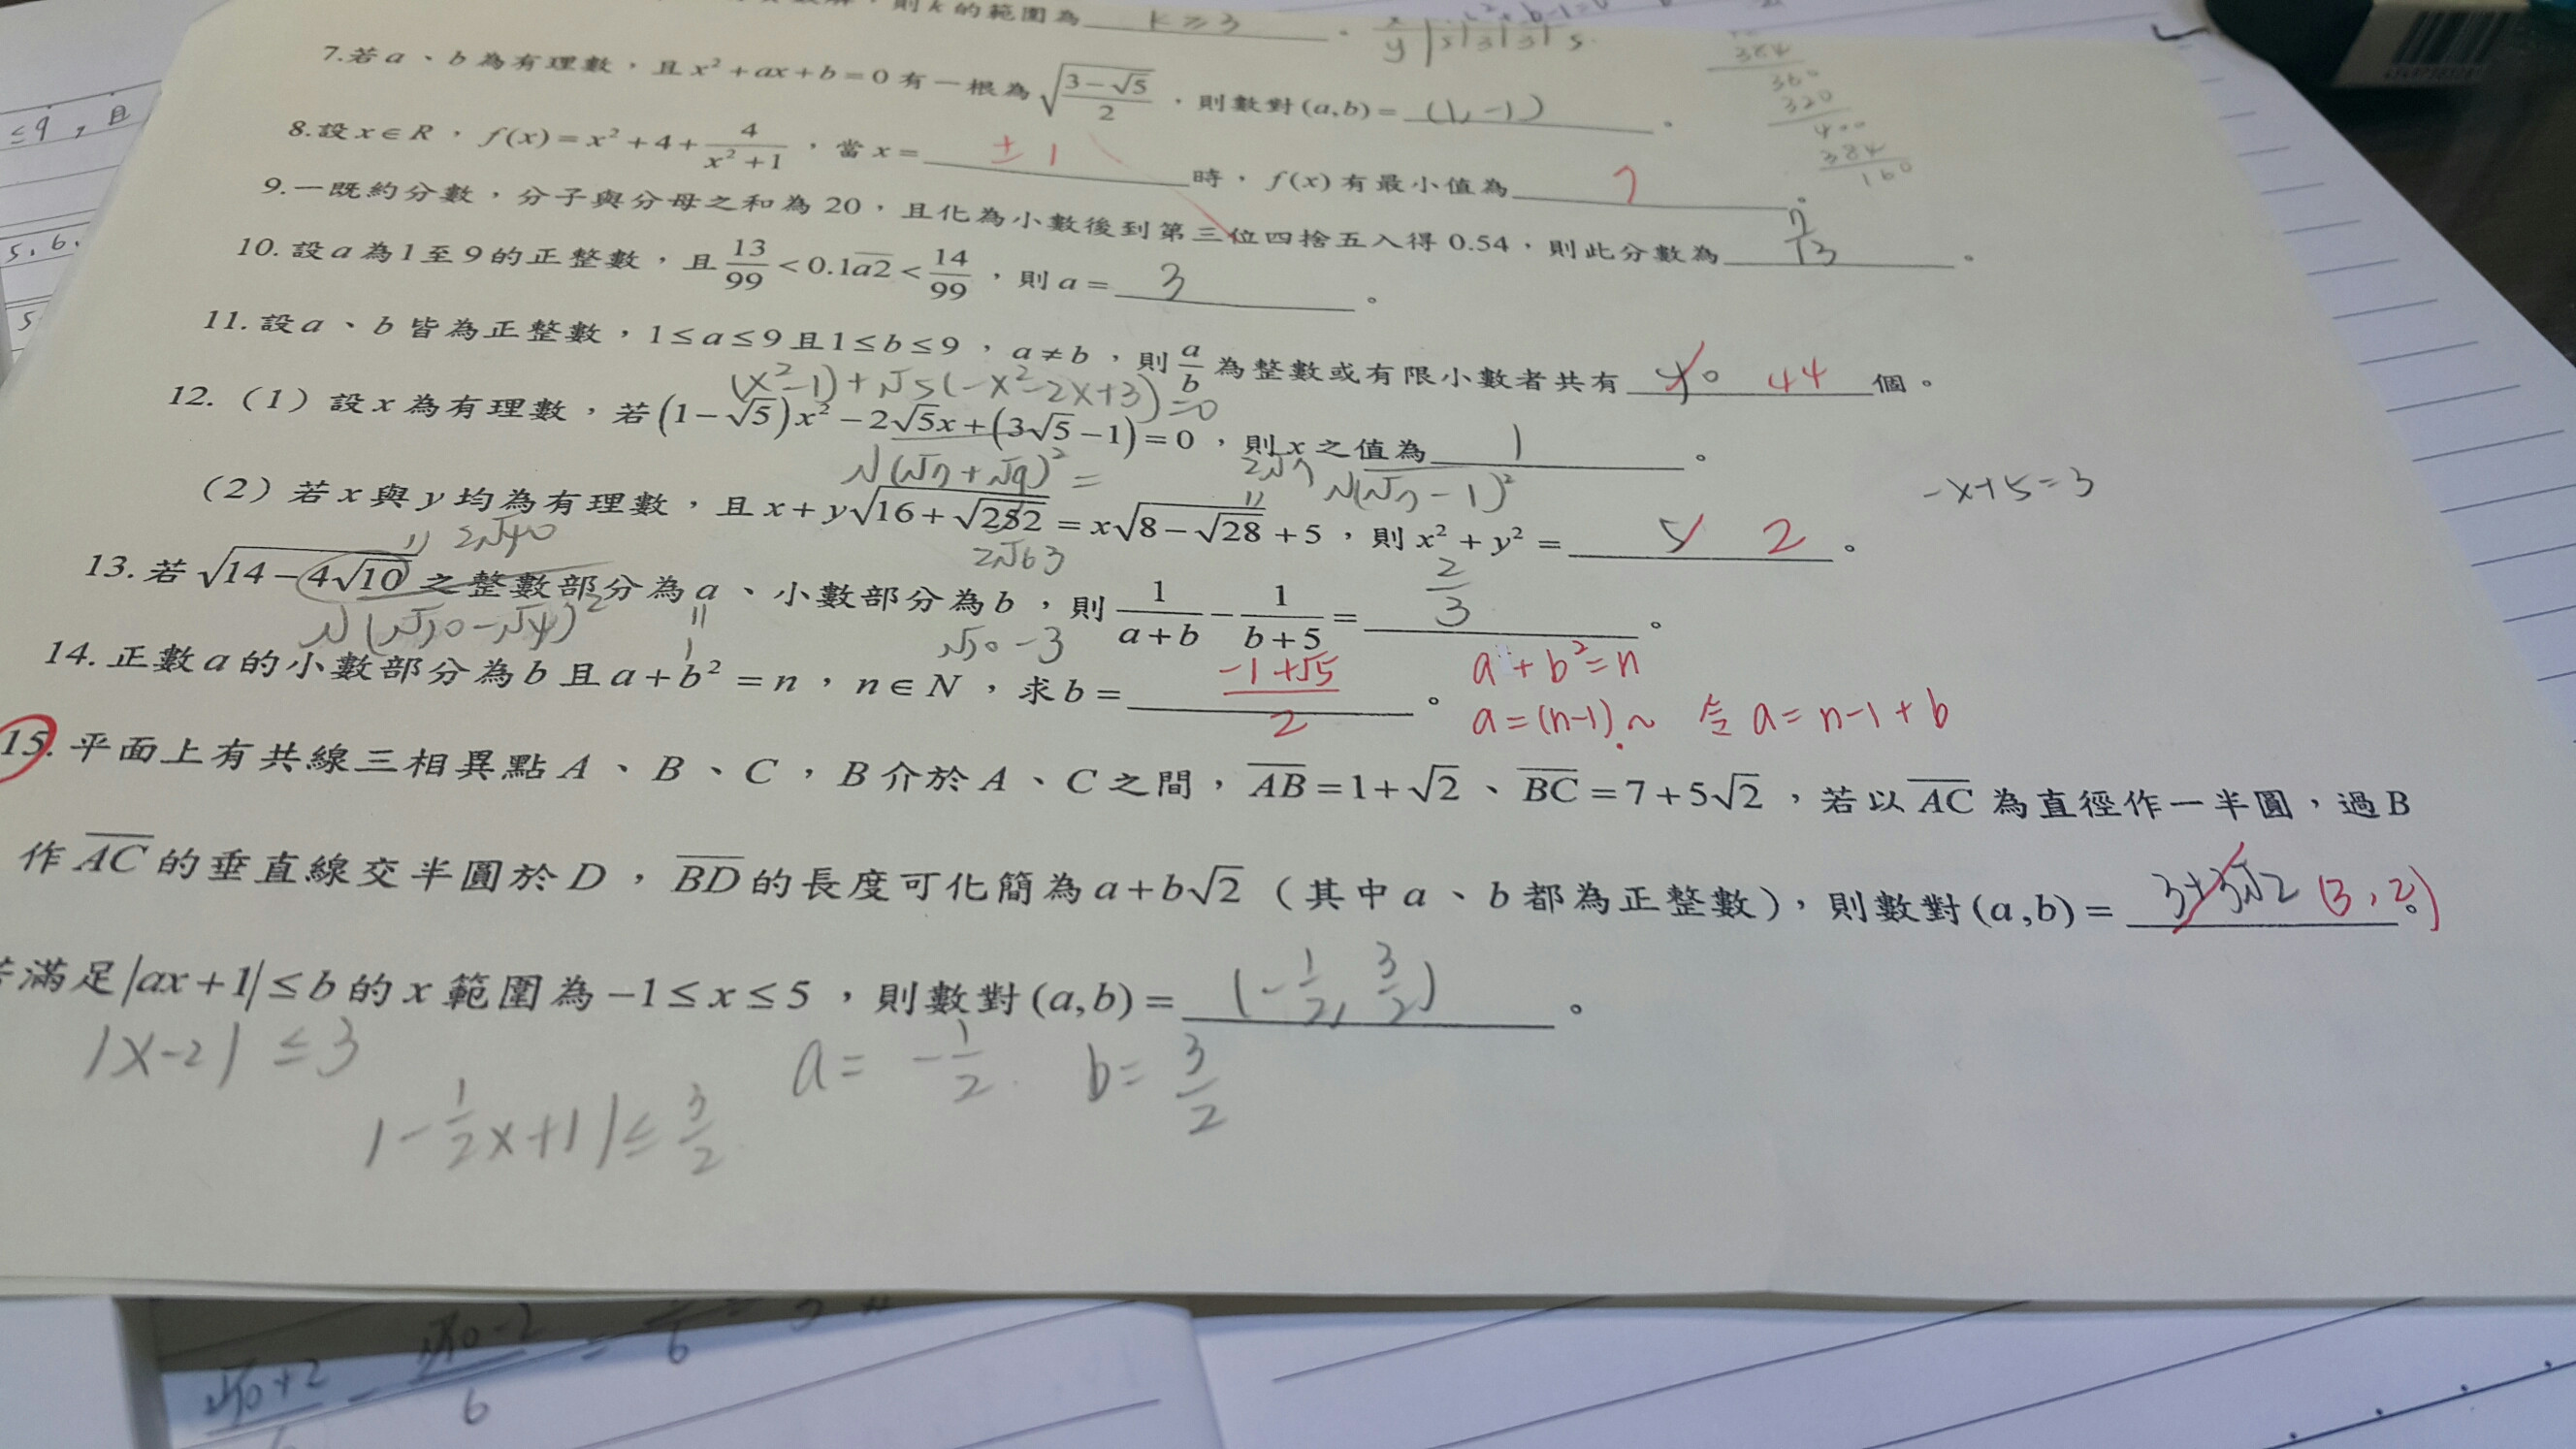 則k的範圍為 k≥3 。
7.若a、b為有理數，且x²+ax+b=0有一根為√((3-√5)/2)，則數對(a,b)= (1,-1) 。
8.設x∈R，f(x)=x²+4+4/(x²+1)，當x= ±1 時，f(x)有最小值為 7 。
9.一既約分數，分子與分母之和為20，且化為小數後到第三位四捨五入得0.54，則此分數為 7/13 。
10.設a為1至9的正整數，且13/99<0.1a̅2̅<14/99，則a= 3 。
11.設a、b皆為正整數，1≤a≤9且1≤b≤9，a≠b，則a/b為整數或有限小數者共有 40 44 個。
(x²-1)+√5(-x²-2x+3)=0
12.（1）設x為有理數，若(1-√5)x²-2√5x+(3√5-1)=0，則x之值為 1 。
√(√7+√9)²= 2√7 √(√7-1)² -x+5=3
（2）若x與y均為有理數，且x+y√(16+√252)=x√(8-√28)+5，則x²+y²= 5 2 。
2√40 2√63
13.若√(14-4√10)之整數部分為a、小數部分為b，則1/(a+b)-1/(b+5)= 2/3 。
√(√10-√4)² 1 √10-3
14.正數a的小數部分為b且a+b²=n，n∈N，求b= (-1+√5)/2 。 a+b²=n
a=(n-1).~ 令a=n-1+b
15.平面上有共線三相異點A、B、C，B介於A、C之間，A̅B̅=1+√2、B̅C̅=7+5√2，若以A̅C̅為直徑作一半圓，過B
作A̅C̅的垂直線交半圓於D，B̅D̅的長度可化簡為a+b√2（其中a、b都為正整數），則數對(a,b)= 3+3√2 (3,2) 。
滿足|ax+1|≤b的x範圍為-1≤x≤5，則數對(a,b)= (-1/2, 3/2) 。
|x-2|≤3 a=-1/2. b=3/2
|-1/2x+1|≤3/2
≤9，且
5.6.
5
364
360
320
400
384
160